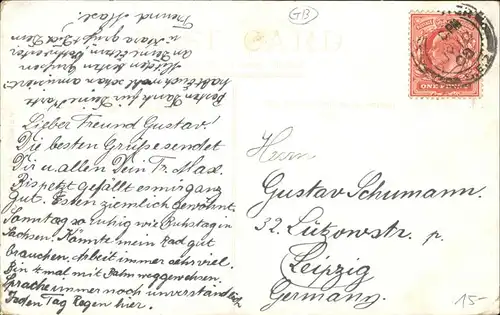 GB
ONE PENNY
Lieber Freund Gustav!
Die besten Grüße sendet
Dir u. allen Dein Fr. Max.
Bis jetzt gefällt es mir ganz
gut. Essen ziemlich gewöhnt.
Sonntag so ruhig wie Bußtag in
Sachsen. Könnte mein Rad gut
brauchen. Arbeit immer sehr viel.
Bin 4 mal mit Bahn weggewesen.
Sprache immer noch unverständlich
Jeden Tag Regen hier.
besten Dank für Deine Karte
habe mich schon amüsiert.
Mit den besten Grüßen
an Deine lieben
u. grüßt Dich Dein
Freund Max.
Herrn
Gustav Schumann.
32. Lützowstr. p.
Leipzig
Germany.
15-